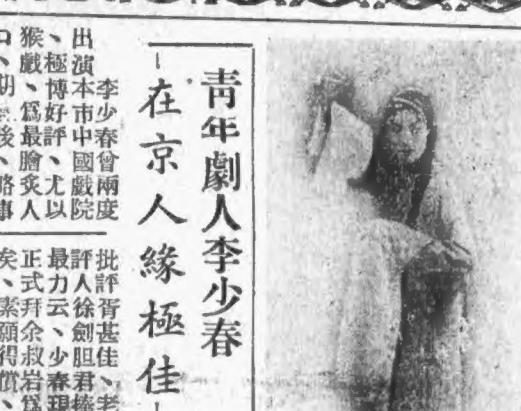 青年劇人李少春
在京人緣極佳
李少春曾兩度
出演本市中國戲院
、極博好評、尤以
猴戲、爲最膾炙人
口、期
後、略事
批評胥甚佳、老
評人徐劍胆君捧
最力云、少春現
正式拜余叔岩爲
矣、素願得償、